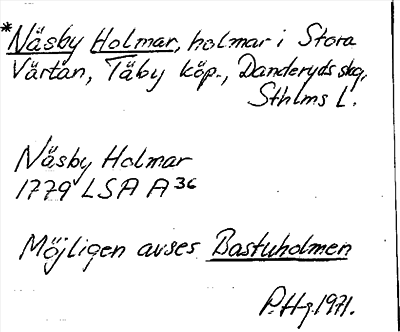 *Näsby Holmar, holmar i Stora
Värtan, Täby köp., Danderyds skg,
Sthlms L.
Näsby Holmar
1779 LSA A 36
Möjligen avses Bastuholmen
P.Hg. 1971.